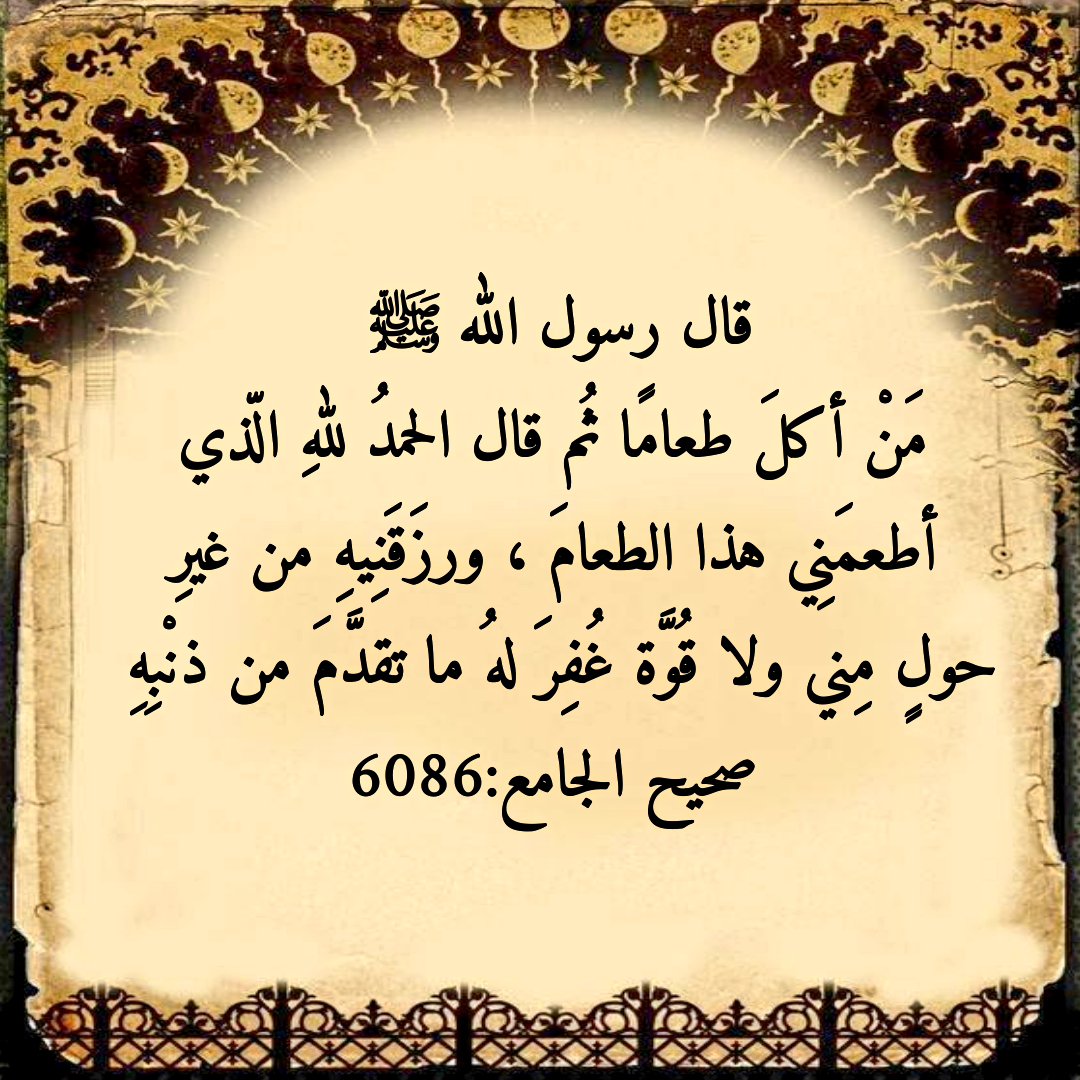 قال رسول الله ﷺ
مَنْ أكلَ طعامًا ثُم قال الحمدُ للهِ الّذي
أطعمَنِي هذا الطعامَ ، ورزَقَنِيهِ من غيرِ
حولٍ مِني ولا قُوَّة غُفِرَ لهُ ما تقدَّمَ من ذنْبِهِ
صحيح الجامع:6086